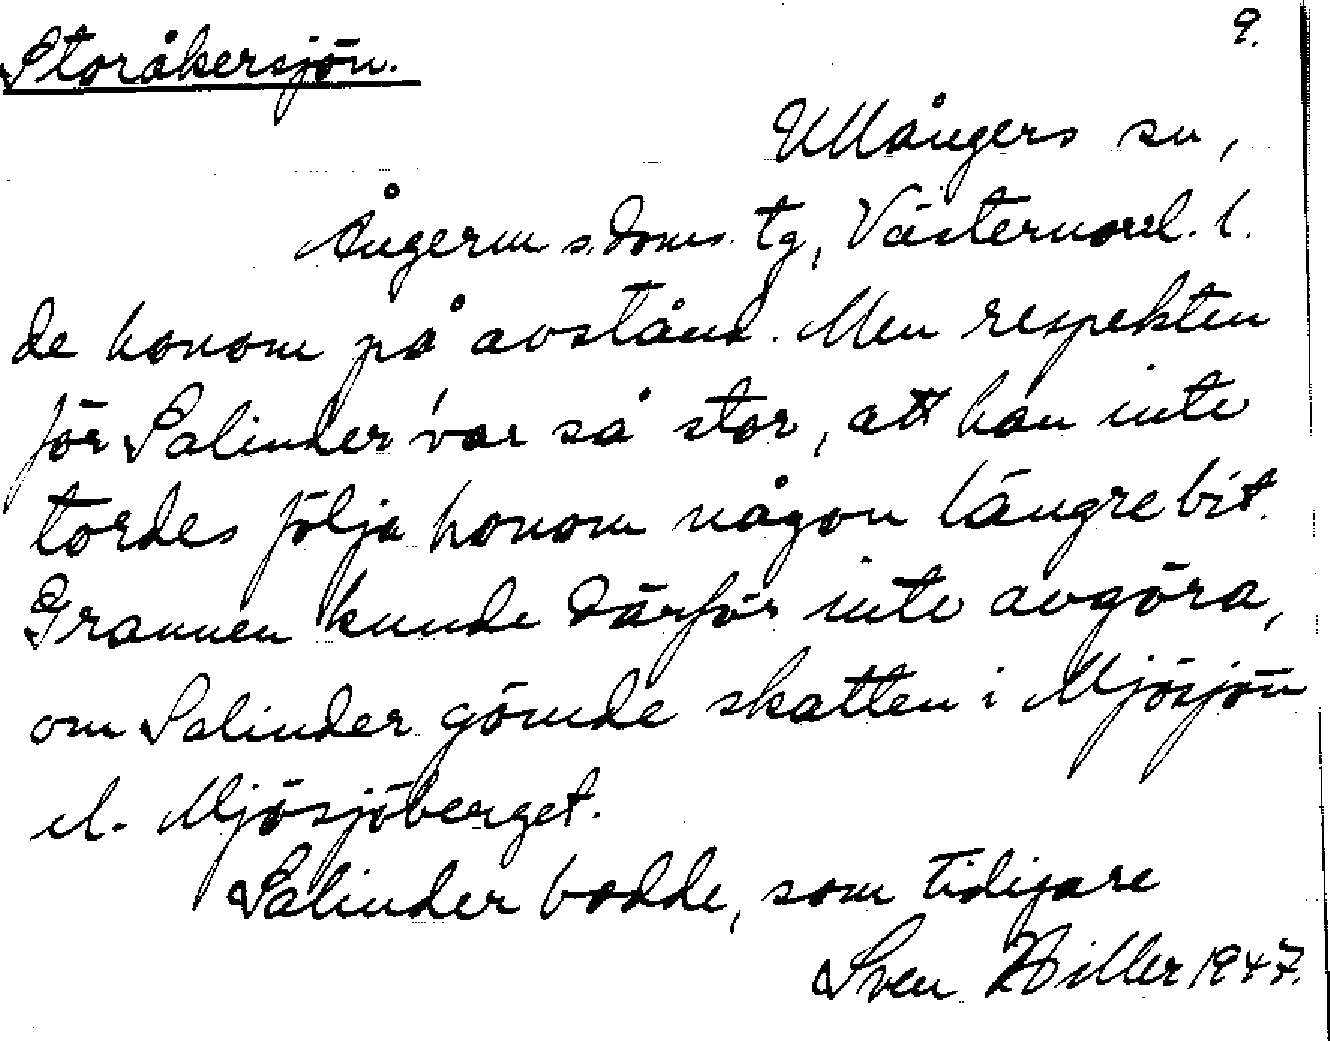 Storåkersjön.
9.
Ullångers sn,
Ångerm s. doms. tg, Västernorrl. l.
de honom på avstånd. Men respekten
för Salinder var så stor, att han inte
tordes följa honom någon längre bit.
Grannen kunde därför inte avgöra,
om Salinder gömde skatten i Mjösjön
el. Mjösjöberget.
Salinder bodde, som tidigare
Sven Hiller 1947.